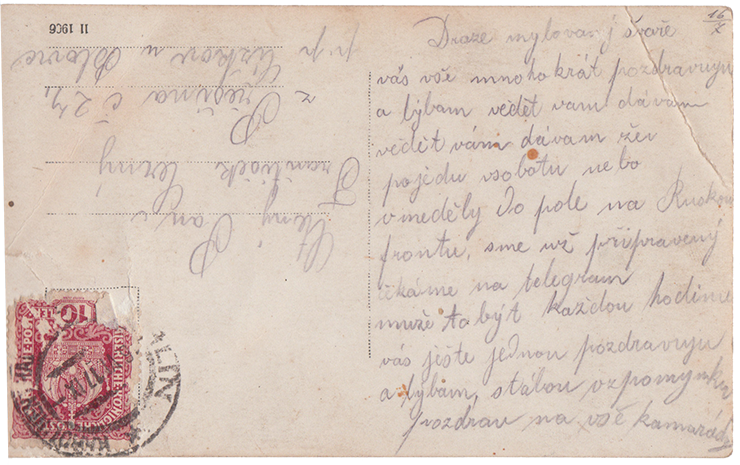 16/X
Draze mylovaný švaře
vás vše mnoho krát pozdravuju
a lybam vědět vam dávám
vědět vám dávam žei
pojedu vsobotu nebo
vneděly Do pole na Ruskou
frontu, sme už přípravený
čkáme na telegram
muže to být každou hodinu
vás jište jednou pozdravuju
a lybám, stálou vzpomynku
pozdrav na vše kamarády
Ctěný Pan
František Černý
z Předina č 27
p. p.
II 1906
10